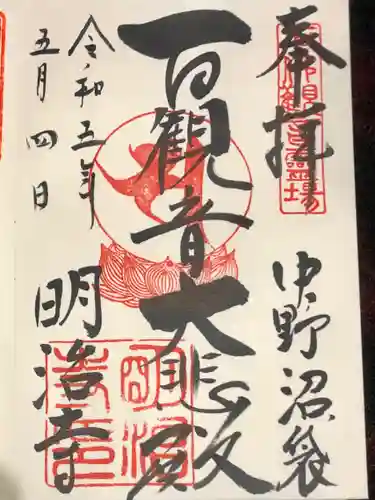 奉拝
中野沼袋
百観音大悲殿
明治寺
令和五年
五月四日
明治